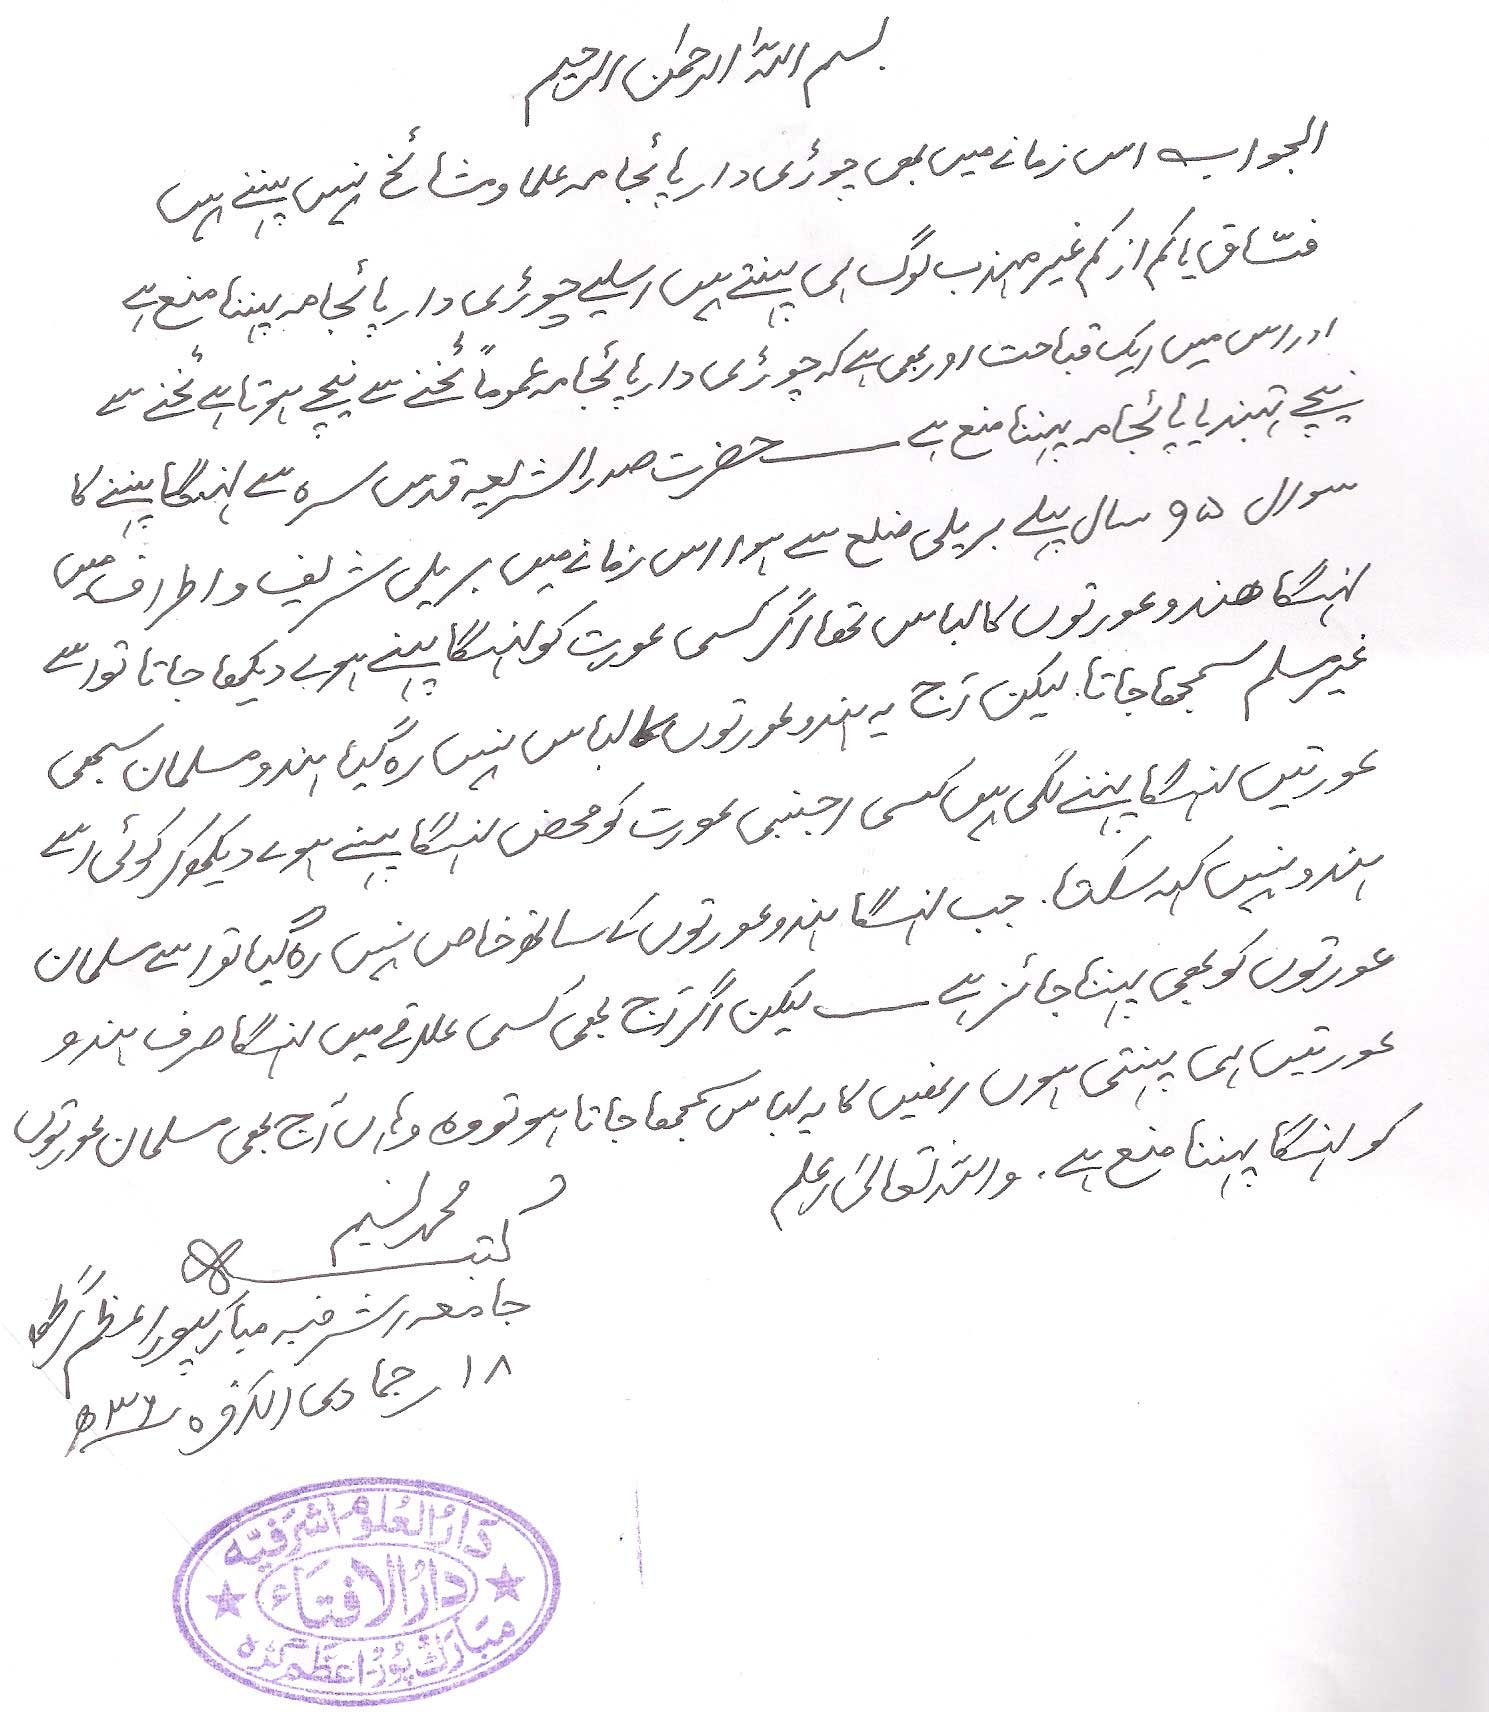 بسم اللہ الرحمٰن الرحیم
الجواب اس زمانے میں بھی چوڑی دار پائجامہ علما و مشائخ نہیں پہنتے ہیں
فسّاق یا کم از کم غیر مہذب لوگ ہی پہنتے ہیں اسلیے چوڑی دار پائجامہ پہننا منع ہے
اور اس میں ایک قباحت اور بھی ہے کہ چوڑی دار پائجامہ عموماً ٹخنے سے نیچے ہوتا ہے ٹخنے سے
نیچے تہبند یا پائجامہ پہننا منع ہے ـــ حضرت صدر الشریعہ قدس سرہ سے لہنگا پہننے کا
سوال ۹۵ سال پہلے بریلی ضلع سے ہوا اس زمانے میں بریلی شریف و اطراف میں
لہنگا ھندو عورتوں کا لباس تھا اگر کسی عورت کو لہنگا پہنے ہوے دیکھا جاتا تو اسے
غیر مسلم سمجھا جاتا. لیکن آج یہ ہندو عورتوں کا لباس نہیں رہ گیا ہندو مسلمان سبھی
عورتیں لہنگا پہننے لگی ہیں کسی اجنبی عورت کو محض لہنگا پہنے ہوے دیکھ کر کوئی اسے
ہندو نہیں کہہ سکتا. جب لہنگا ہندو عورتوں کے ساتھ خاص نہیں رہ گیا تو اسے مسلمان
عورتوں کو بھی پہننا جائز ہے ـــ لیکن اگر آج بھی کسی علاقے میں لہنگا صرف ہندو
عورتیں ہی پہنتی ہوں انھیں کا یہ لباس سمجھا جاتا ہو تو وہ وہاں آج بھی مسلمان عورتوں
کو لہنگا پہننا منع ہے. واللہ تعالیٰ اعلم
محمد نسیم
کتبہ
جامعہ اشرفیہ مبارکپور اعظم گڑھ
۱۸ جمادی الآخرہ ۳۶ھ
دَارُ العُلوم اشرَفیّہ
دارُ الافتَاء
مبَارَک پُور اعظَم گڈہ